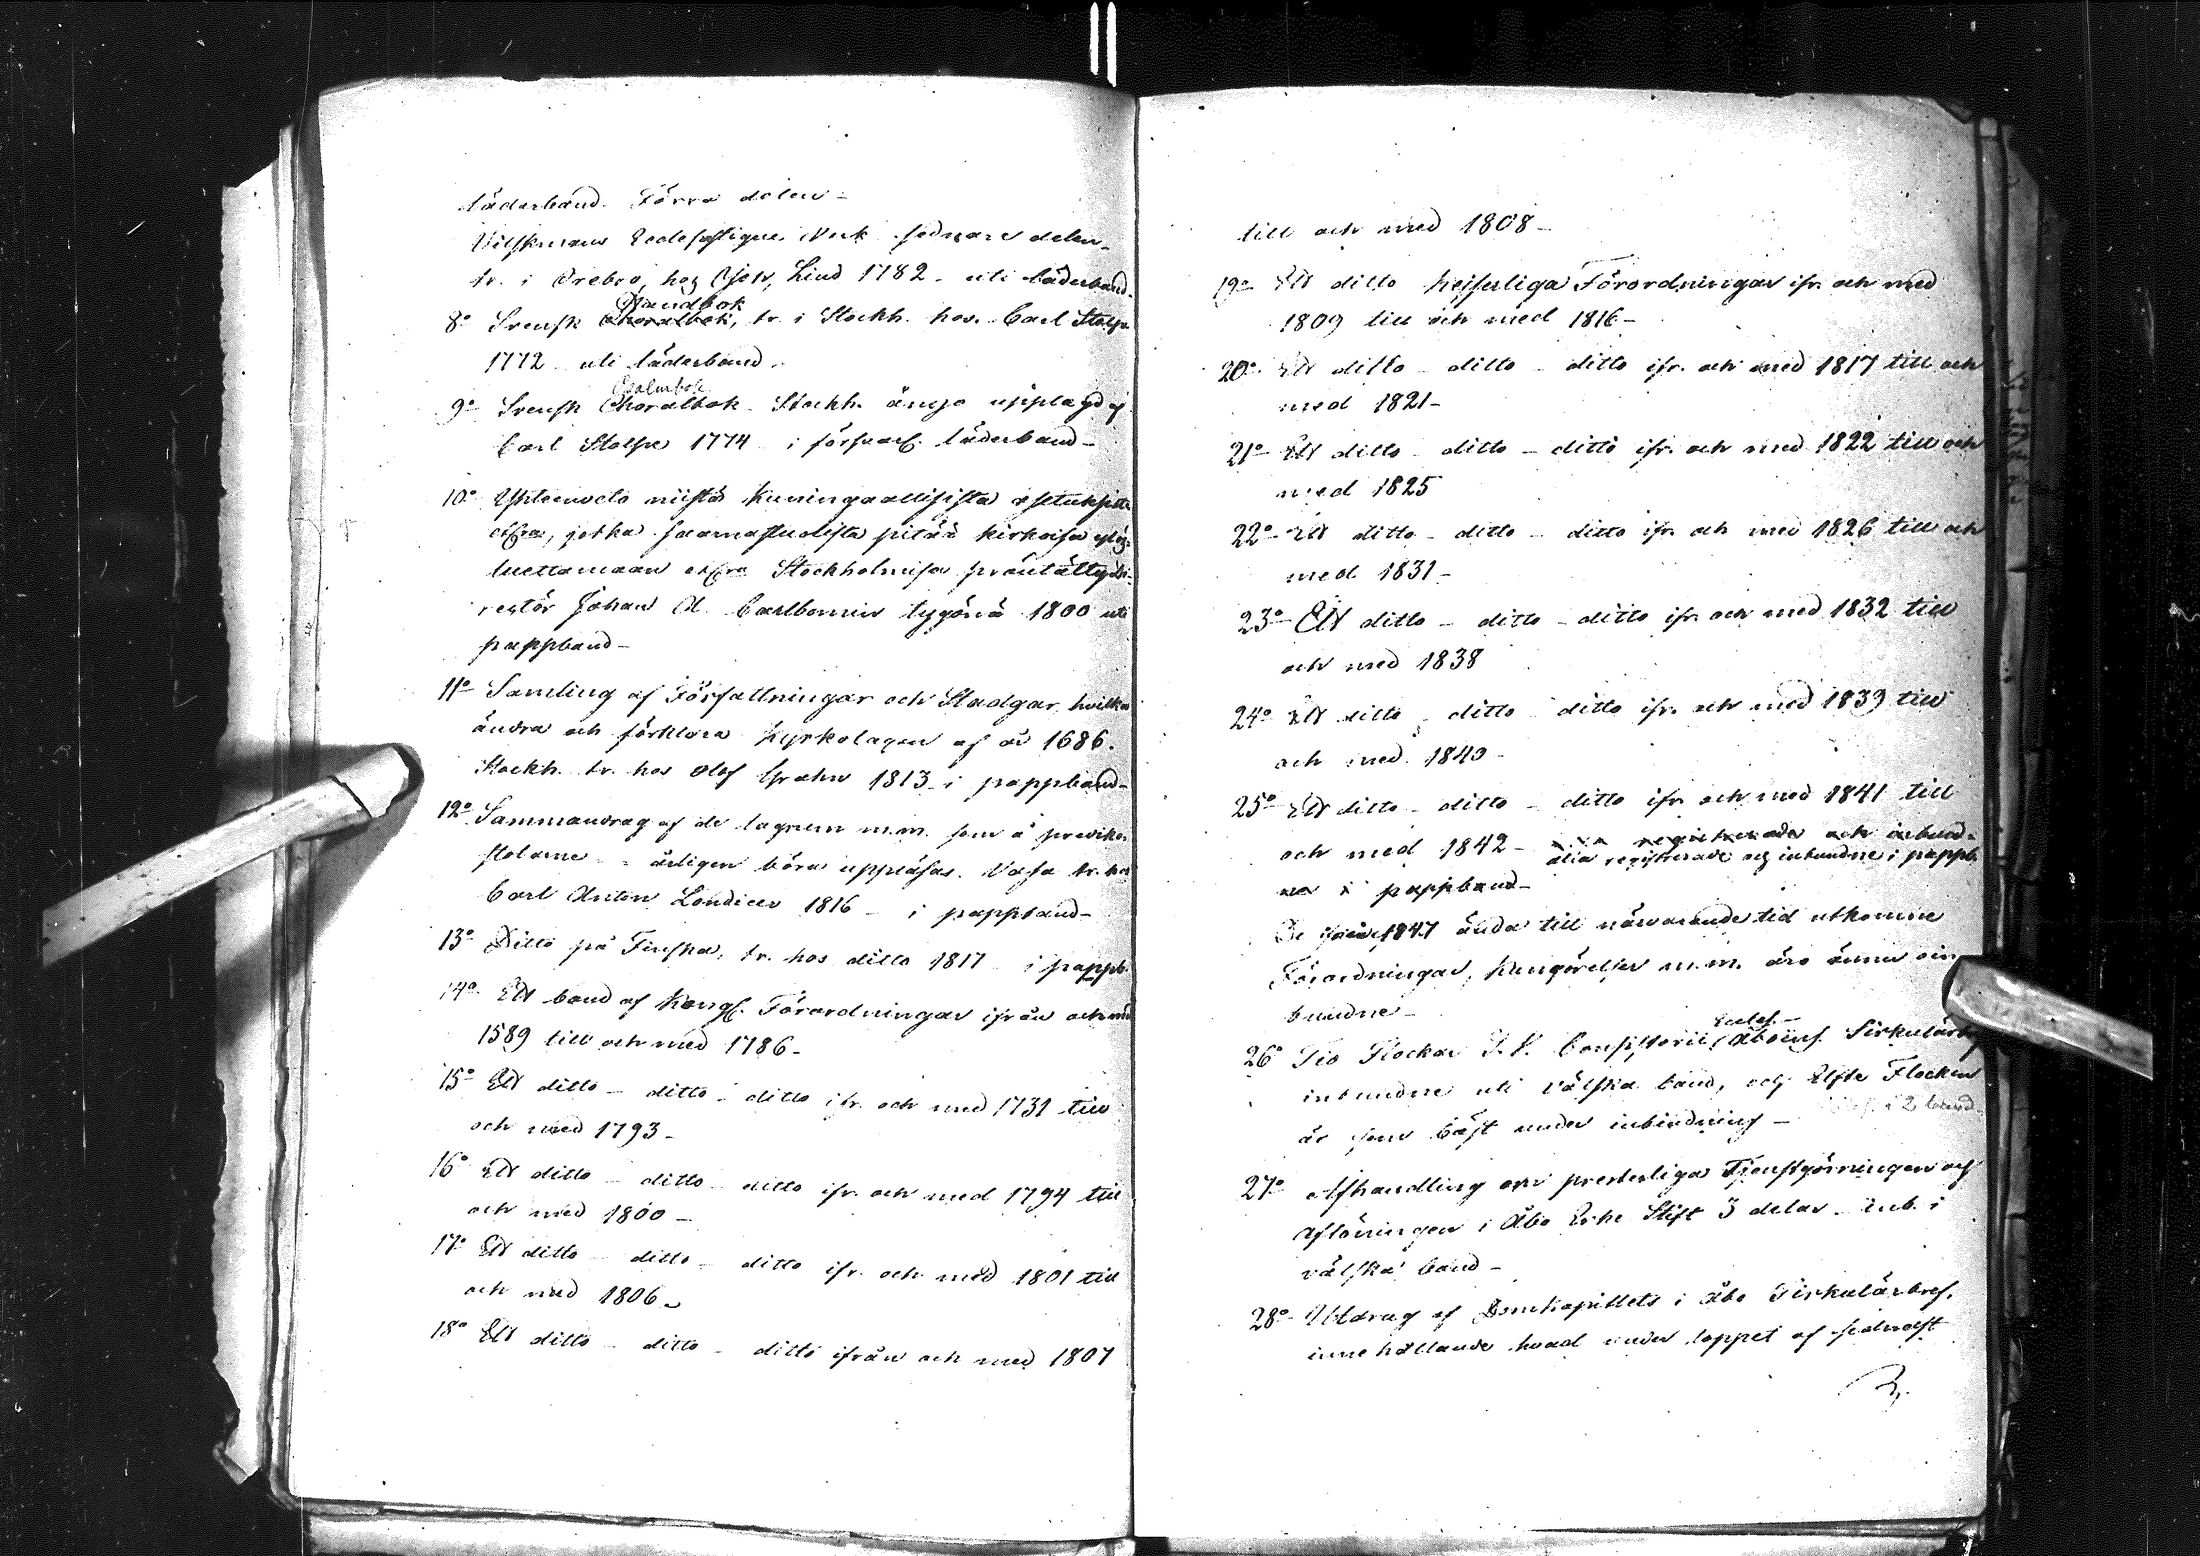 läderband. Förra delen -
Wilskmans Ecclesiastique Verk sednare delen -
tr. i Örebro, hos Lind 1782 - uti läderband -
Handbok
8o Svensk Choralbok, tr. i Stockh. hos Carl Stolpe
1772 uti läderband -
Psalmbok
9o Svensk Choralbok. Stockh. ånyo upplagd af
Carl Stolpe 1774 i läderband -
10o Yhteenveto niistä Kuningaallisista asetuksi
jotka saarnastuolista pitää kirkoisa
luettamaan Stockholmisa präntätty
Johan A. Carlbomin tygönä 1800 uti
pappband -
11o Samling af Författningar och Stadgar hvilka
ändra och förklara Kyrkolagen af år 1686.
Stockh. tr. hos Olof Grahn 1813 - i pappband -
12o Sammandrag af de lagrum m.m. som å prediko-
stolarne - årligen böra uppläsas. Vasa tr. hos
Carl Anton Londicer 1816 - i pappband -
13o Ditto på Finska, tr. hos ditto 1817 i pappb.
14o Ett band af Kongl. Förordningar ifrån och med
1589 till och med 1786 -
15o Ett ditto - ditto - ditto ifr. och med 1731 till
och med 1793 -
16o Ett ditto - ditto - ditto ifr. och med 1794 till
och med 1800 -
17o Ett ditto - ditto - ditto ifr. och med 1801 till
och med 1806 -
18o Ett ditto - ditto - ditto ifrån och med 1807
till och med 1808 -
19o Ett ditto Kejserliga Förordningar ifr. och med
1809 till och med 1816 -
20o Ett ditto - ditto - ditto ifr. och med 1817 till och
med 1821 -
21o Ett ditto - ditto - ditto ifr. och med 1822 till och
med 1825
22o Ett ditto - ditto - ditto ifr. och med 1826 till och
med 1831 -
23o Ett ditto - ditto - ditto ifr. och med 1832 till
och med 1838
24o Ett ditto - ditto ditto ifr. och med 1839 till
och med 1840 -
25o Ett ditto - ditto - ditto ifr. och med 1841 till
och med 1842 - registrerade och inbund-
alla registrerade och inbundne i pappb.
na i pappband -
De 1847 ända till närvarande tid utkomne
Förordningar, Kungörelser m.m. äro ännu oin-
bundne -
Eccles. -
26o Tio Flockar Consistorii Aboens. Cirkulärbref
inbundne uti välska band, och Elfte Flocken
i 2 band -
är som bäst under inbindning -
27o Afhandling om presterliga Tjenstgörningen och
Aflöningen i Åbo Erke Stift 3 delar. inb. i
välska band -
28o Utdrag af Domkapitlets i Åbo Cirkulärbref,
innehållande hvad under loppet af sednast